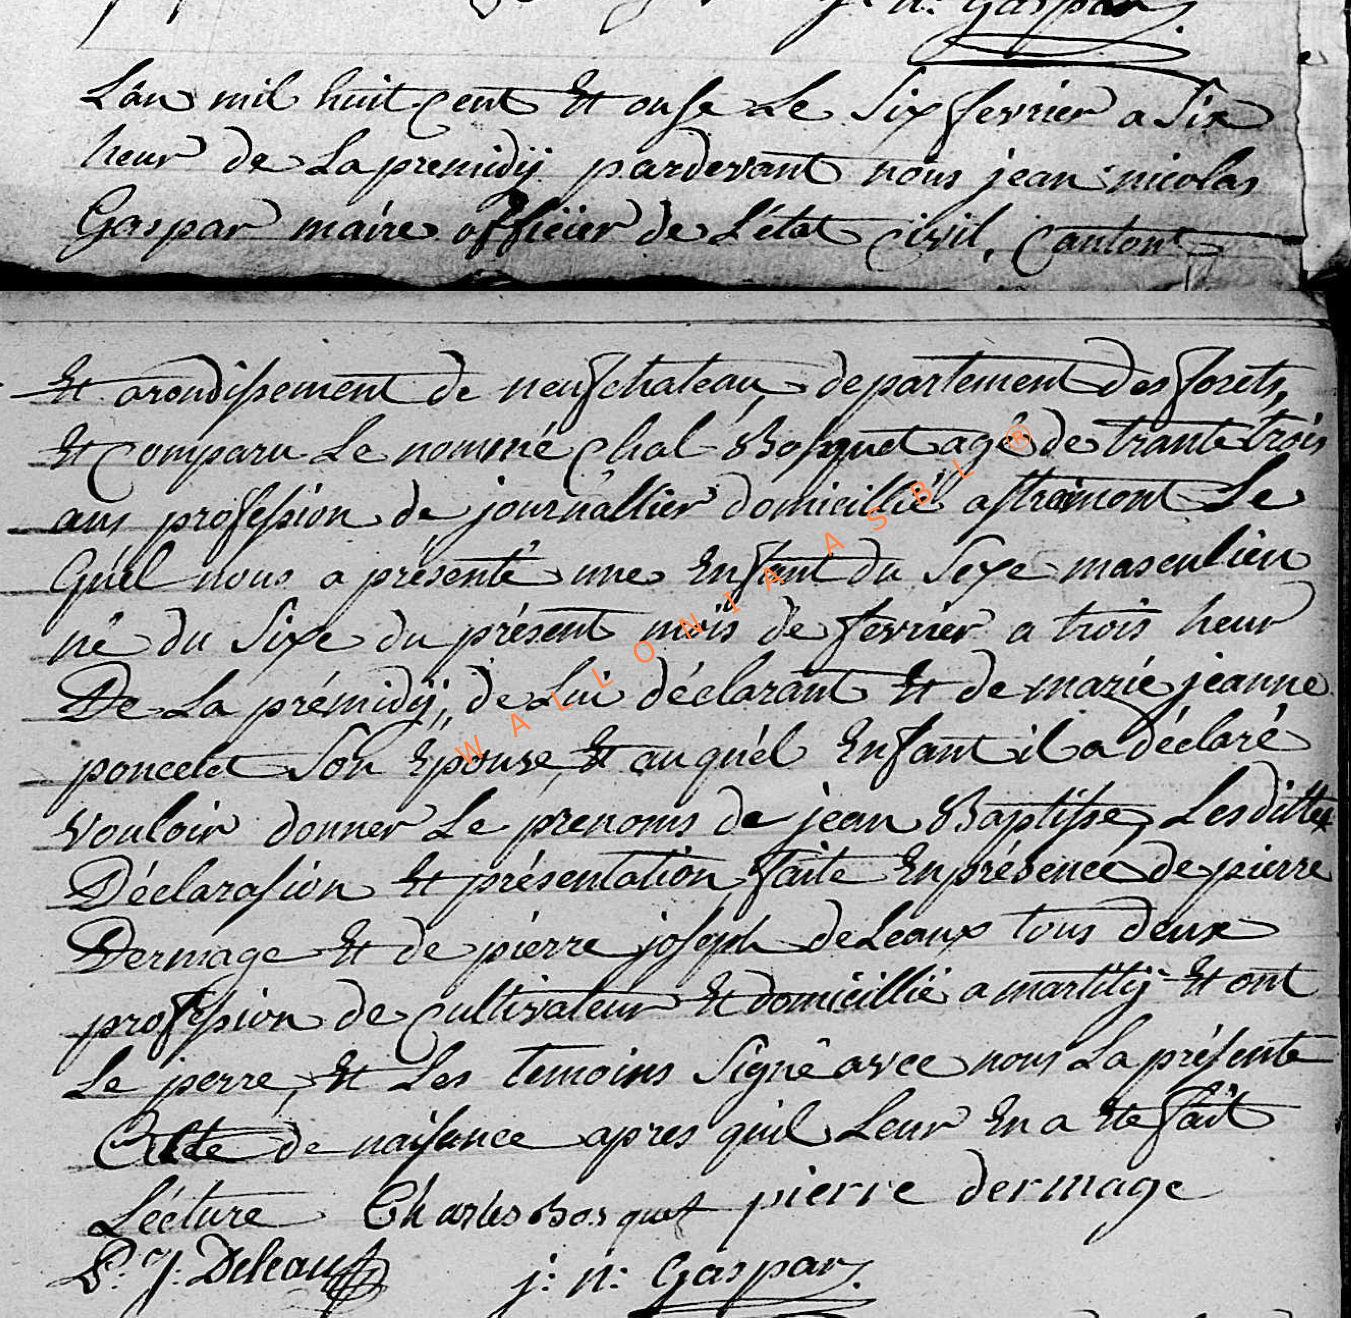 j. n. Gaspar
Lan mil huit cent Et onse Le Six fevrier a Six
heur de La premidij pardevant nous jean nicolas
Gaspar maire officier de L'état Civil, Canton
Et arondissement de neufchateau, departement des forets,
Et Comparu Le nommé Chal Bosquet agé de trante trois
ans profession de journallier domicillié astraimont Le
Quél nous a présenté une Enfant du Sexe masculien
né du Sixe du présent mois de fevrier a trois heur
De La prémidij, de Lui déclarant Et de marie jeanne
poncelet Son Épouse, Et auquél Enfant il a déclaré
vouloir donner Le prenoms de jean Baptisse, Les dittes
Déclarasion Et présentation faite En présence de pierre
Dermage Et de piérre joseph deLeaux tous deux
profession de Cultivateur Et domicillié a martilij Et ont
Le perre, Et Les temoins Signé avec nous La présente
Acte de naissance apres quil Leur En a été fait
Lécture Charles Bosquet pierre dermage
P. J. Deleau
j: n: Gaspar
WALLONIA ASBL ®